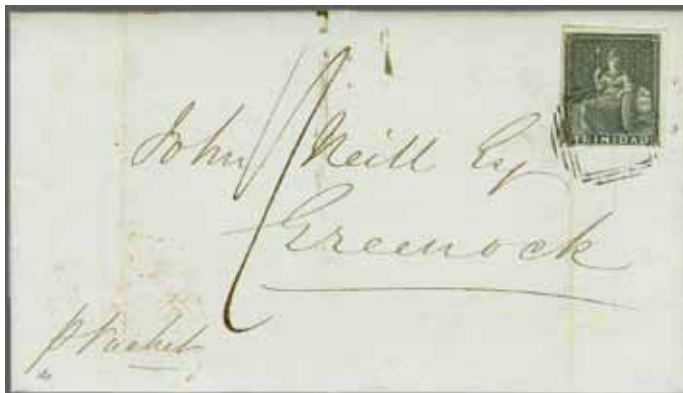 TRINIDAD
John Neill Esq
Greenock
p Packet